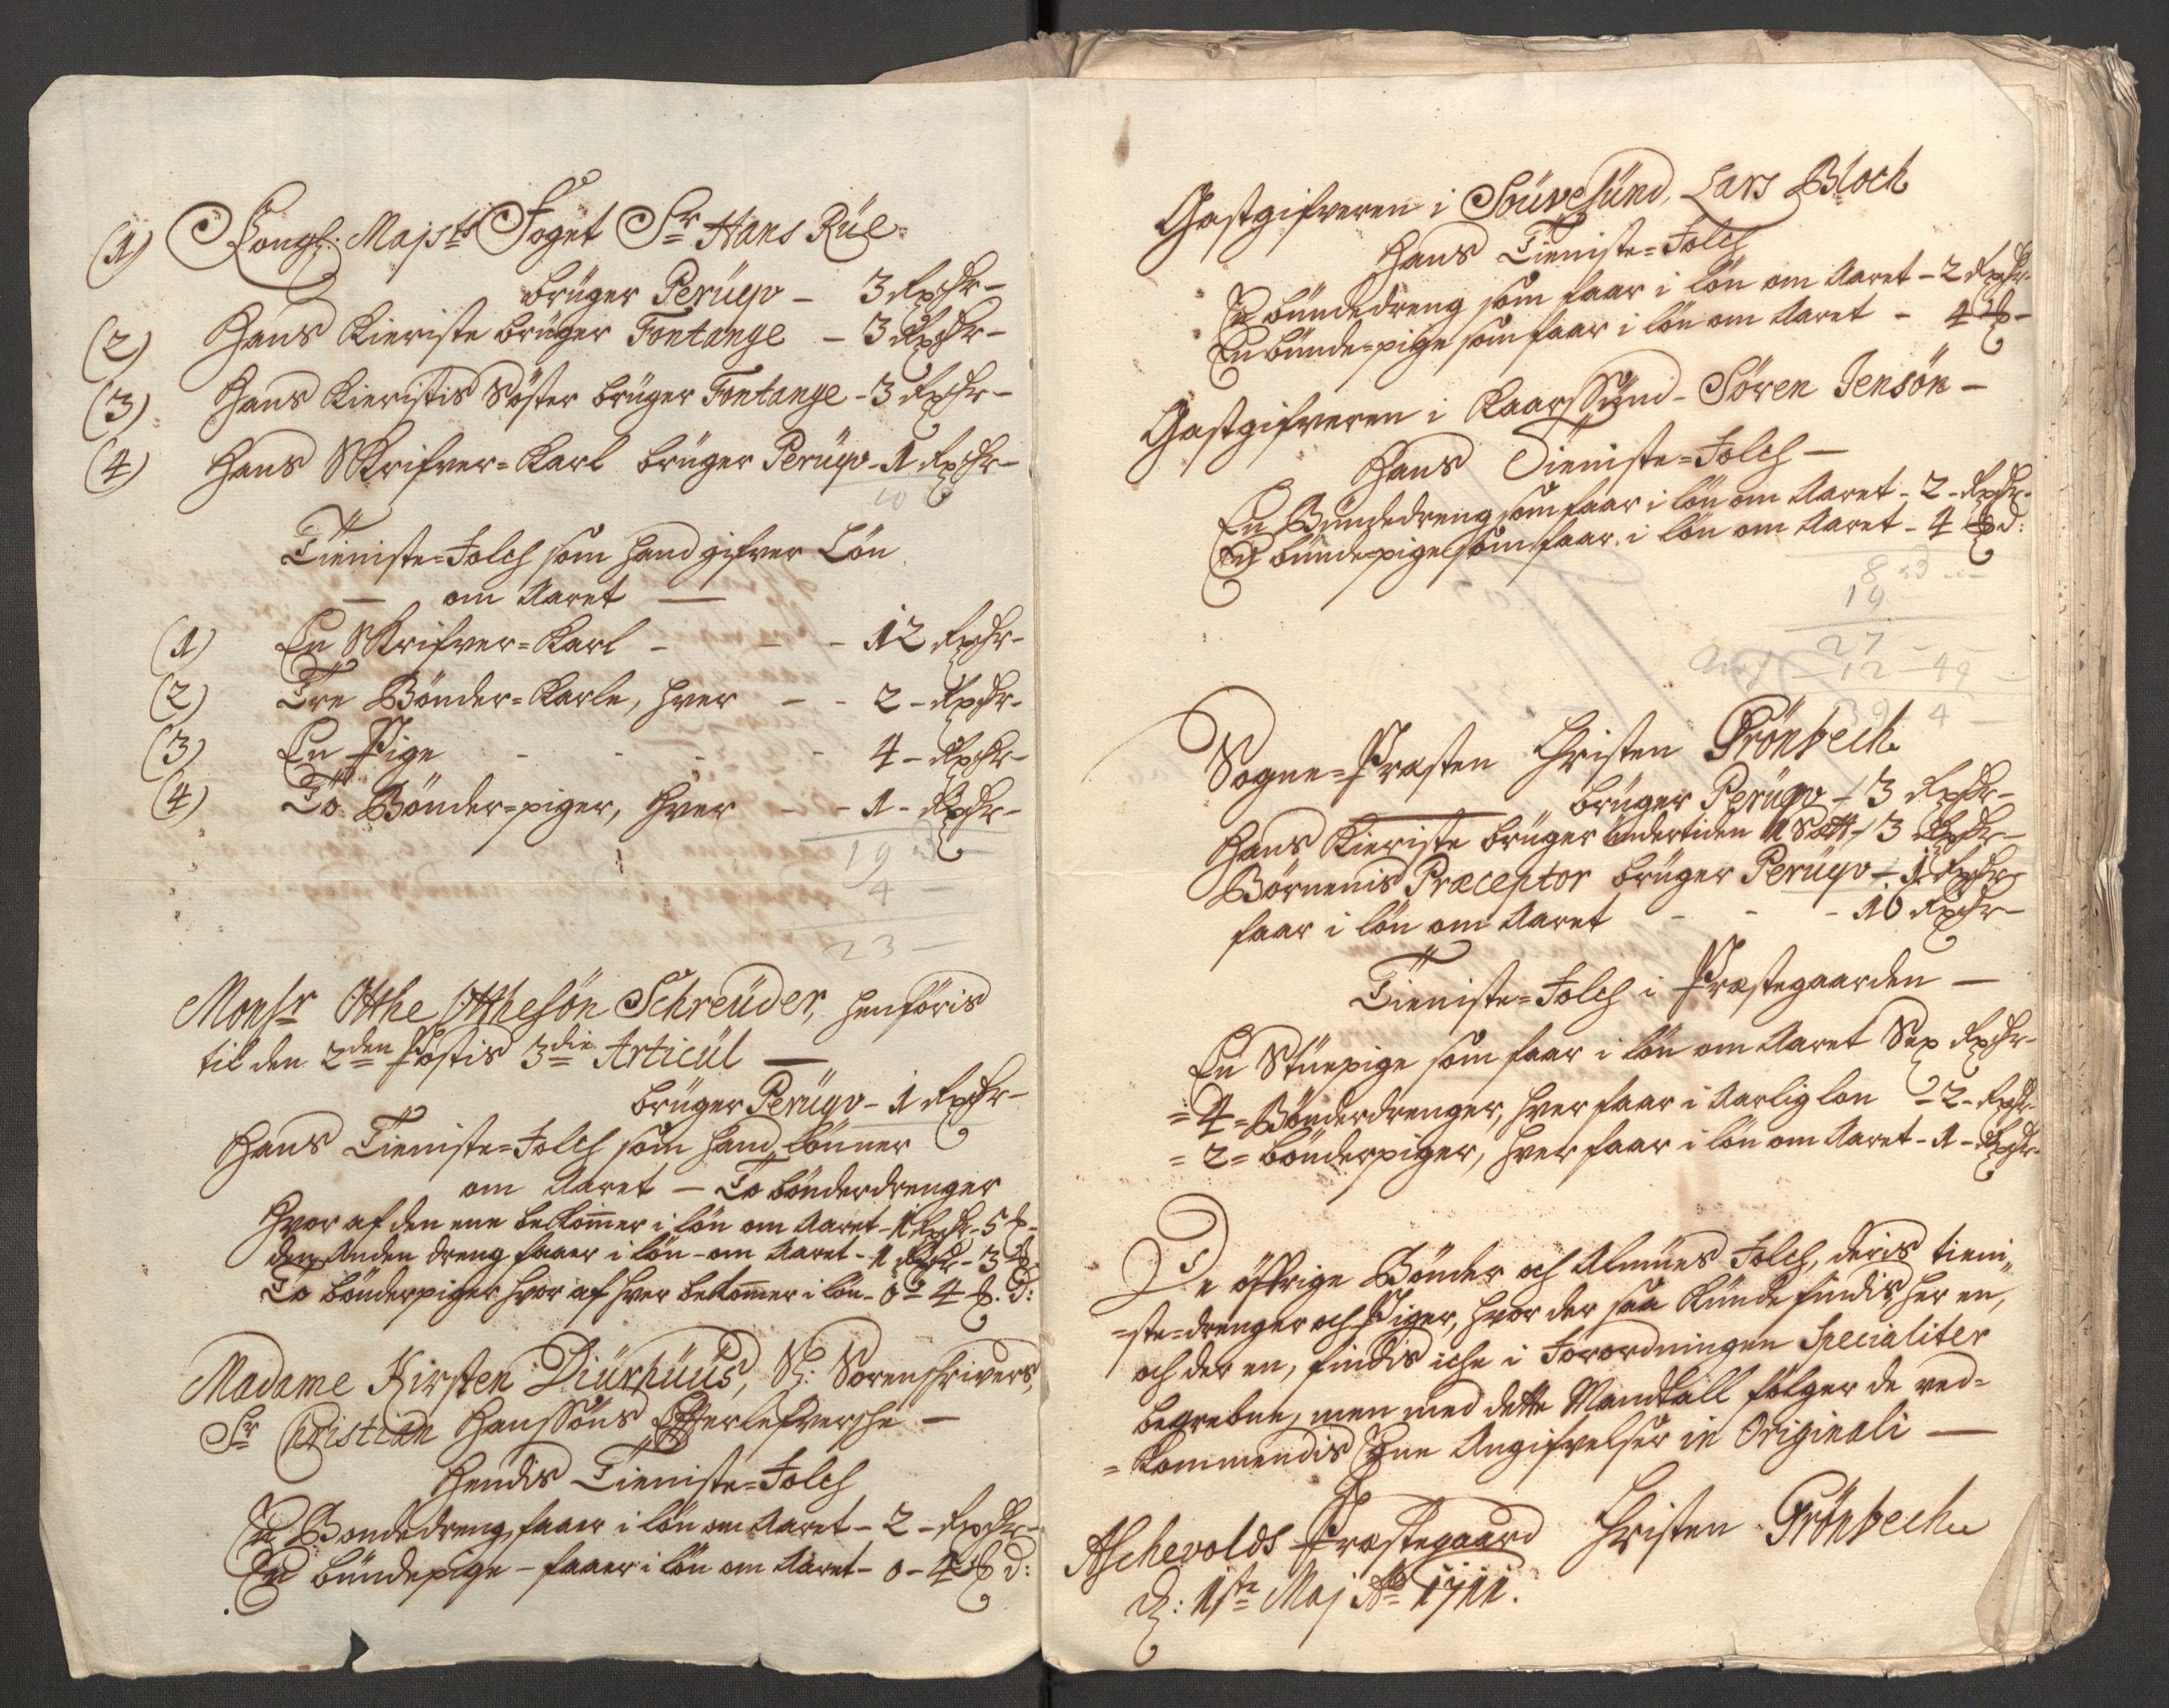 (1) Kongl: Majsts Foget Sr Hans Rüe
brüger Perüqv – 3 Rixdr–
(2) Hans Kieriste brüger Fontange – 3 Rixdr–
(3) Hans Kieristis Söster brüger Fontange – 3 Rixdr–
(4) Hans Skrifver=Karl brüger Perüqv – 1 Rixdr–
10
Tieniste=Folch som hand gifver Lön
– om Aaret –
(1) En Skrifver=Karl – – – 12 Rixdr–
(2) Tre Bönder=Karle, hver – – 2 – Rixdr–
(3) En Pige – – – – 4 – Rixdr–
(4) To Bönder=piger, hver – – 1 – Rixdr–
19
4 –
23 –
Monsr Otthe Otthesön Schreüder, henföris
til den 2den Postis 3die Articül –
brüger Perüqv – 1 Rixdr–
Hans Tieniste=Folch som hand lönner
om Aaret – To bönderdrenger
hvor af den ene bekommer i lön om Aaret – 1 Rixdr – 5
den Anden dreng faaer i lön – om Aaret – 1 Rixdr – 3
To bönderpiger hvor af hver bekommer i lön – 0 – 4 d:
Madame Kirsten Diürhüüs, Sl: Sorenschrivers,
Sr Christian Hanssöns Efterlefversche –
Hendis Tieniste=Folch
En Bondedreng, faaer i lön om Aaret – 2 – Rixdr–
En bündepige – faaer i lön om Aaret – 0 – 4 d:
Gastgifveren i Sküvesünd, Lars Bloch
Hans Tieniste=Folch
En bündedreng som faar i lön om Aaret – 2 Rixdr
En bünde=pige som faar i lön om Aaret – 4
Gastgifveren i KaarsSünd – Sören Jensön –
Hans Tieniste=Folch –
En Bündedreng som faar i lön om Aaret – 2 – Rixdr
En bünde=pige som faar i lön om Aaret – 4 d:
8
19
27
12 – 49
39 4 –
Sogne=Præsten Christen Grönbech
brüger Perüqv – 3 Rixdr–
Hans Kieriste brüger ündertiden 1 Sætt – 3 Rixdr–
Börnenis Præceptor brüger Perüqv – 1 Rixdr–
faar i lön om Aaret – – – 10 Rixdr–
Tieniste=Folch i Præstegaarden –
En Stüepige som faar i lön om Aaret Sex Rixdr–
= 4 = Bönderdrenger, hver faar i Aarlig lön – 2 – Rixdr
= 2 = bönderpiger, hver faar i lön om Aaret – 1 – Rixdr
De öffrige Bönder och Almües Folch, deris tieni„
=ste=drenger och Piger, hvor der saa künde findis, her en,
och der en, findis iche i Forordningen Specialiter
begrebne, men med dette Mandtall fölger de ved=
=kommendis Egne Angifvelser in Originali –
Aschevolds Præstegaard Christen Grönbech
d: 1ste Maj Ao 1711.